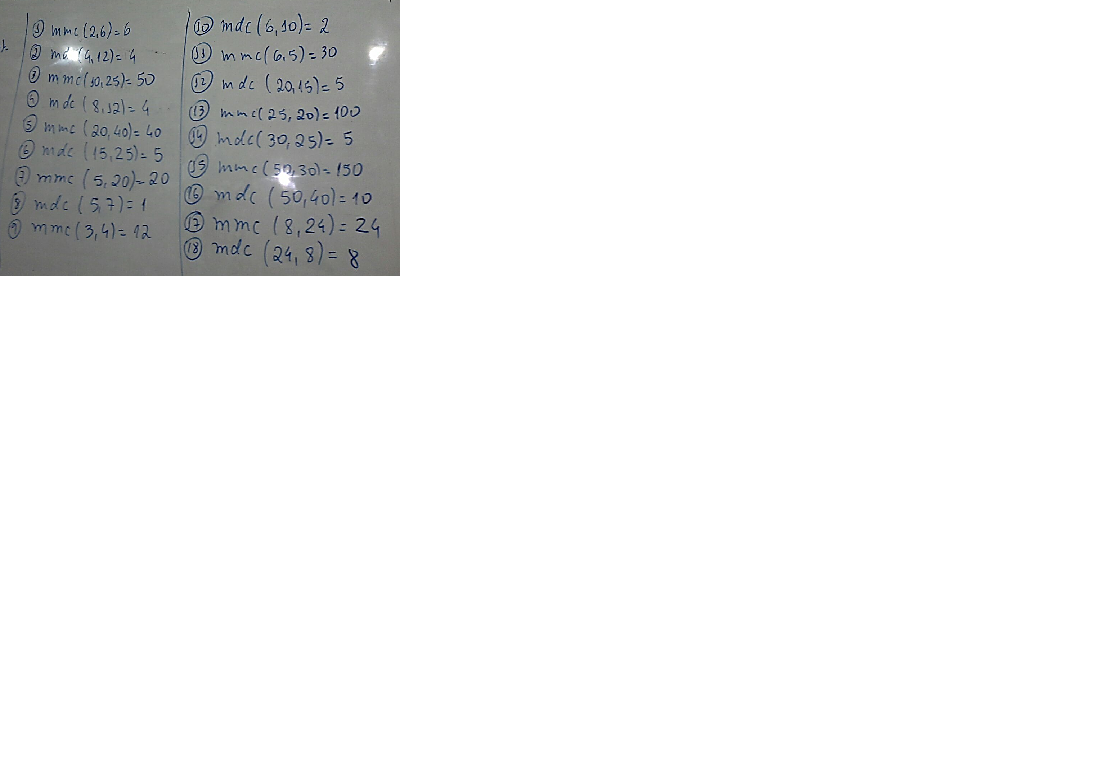 ① mmc(2,6)=6
② md (4,12)=4
③ mmc(10,25)=50
④ mdc (8,12)=4
⑤ mmc (20,40)=40
⑥ mdc (15,25)=5
⑦ mmc (5,20)=20
⑧ mdc (5,7)=1
⑨ mmc(3,4)=12
⑩ mdc(6,10)=2
⑪ mmc(6,5)=30
⑫ mdc (20,15)=5
⑬ mmc(25,20)=100
⑭ mdc(30,25)=5
⑮ mmc(50,30)=150
⑯ mdc (50,40)=10
⑰ mmc (8,24)=24
⑱ mdc (24,8)=8